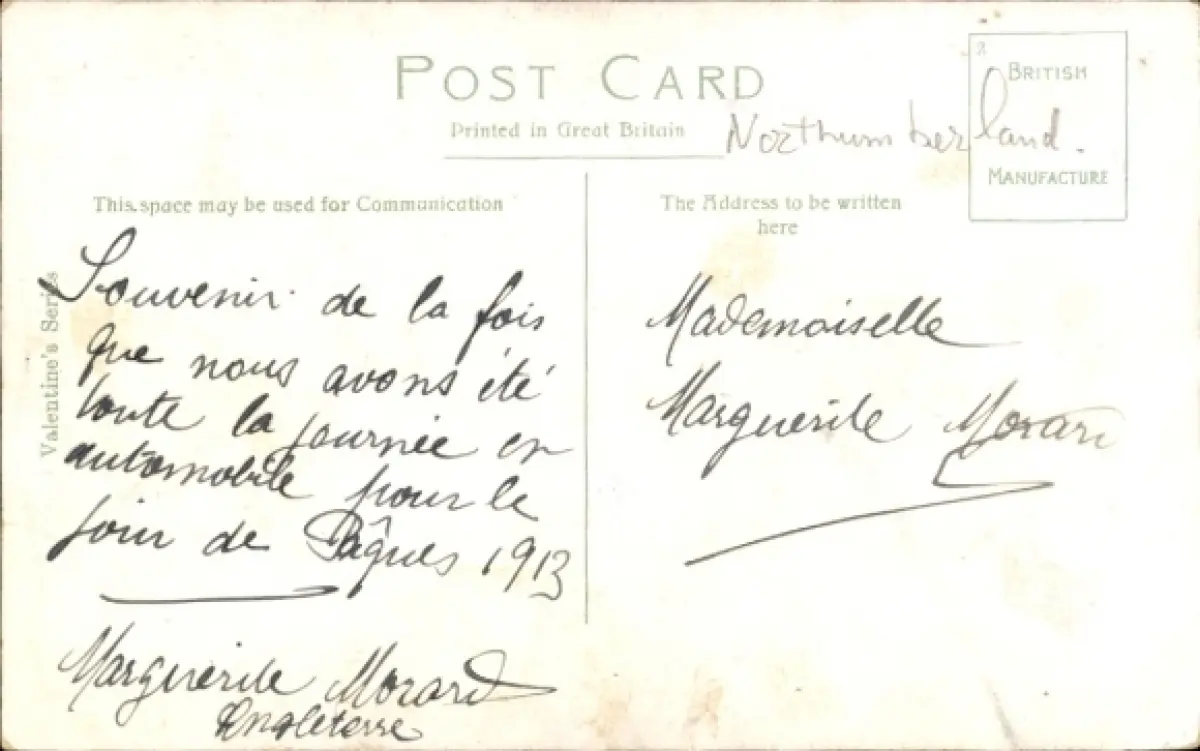 POST CARD
Printed in Great Britain
Northumberland.
BRITISH
MANUFACTURE
This space may be used for Communication
The Address to be written
here
Valentine's Series
Souvenir de la fois
que nous avons été
toute la journée en
automobile pour le
jour de Pâques 1913
Marguerite Morard
Angleterre
Mademoiselle
Marguerite Morard